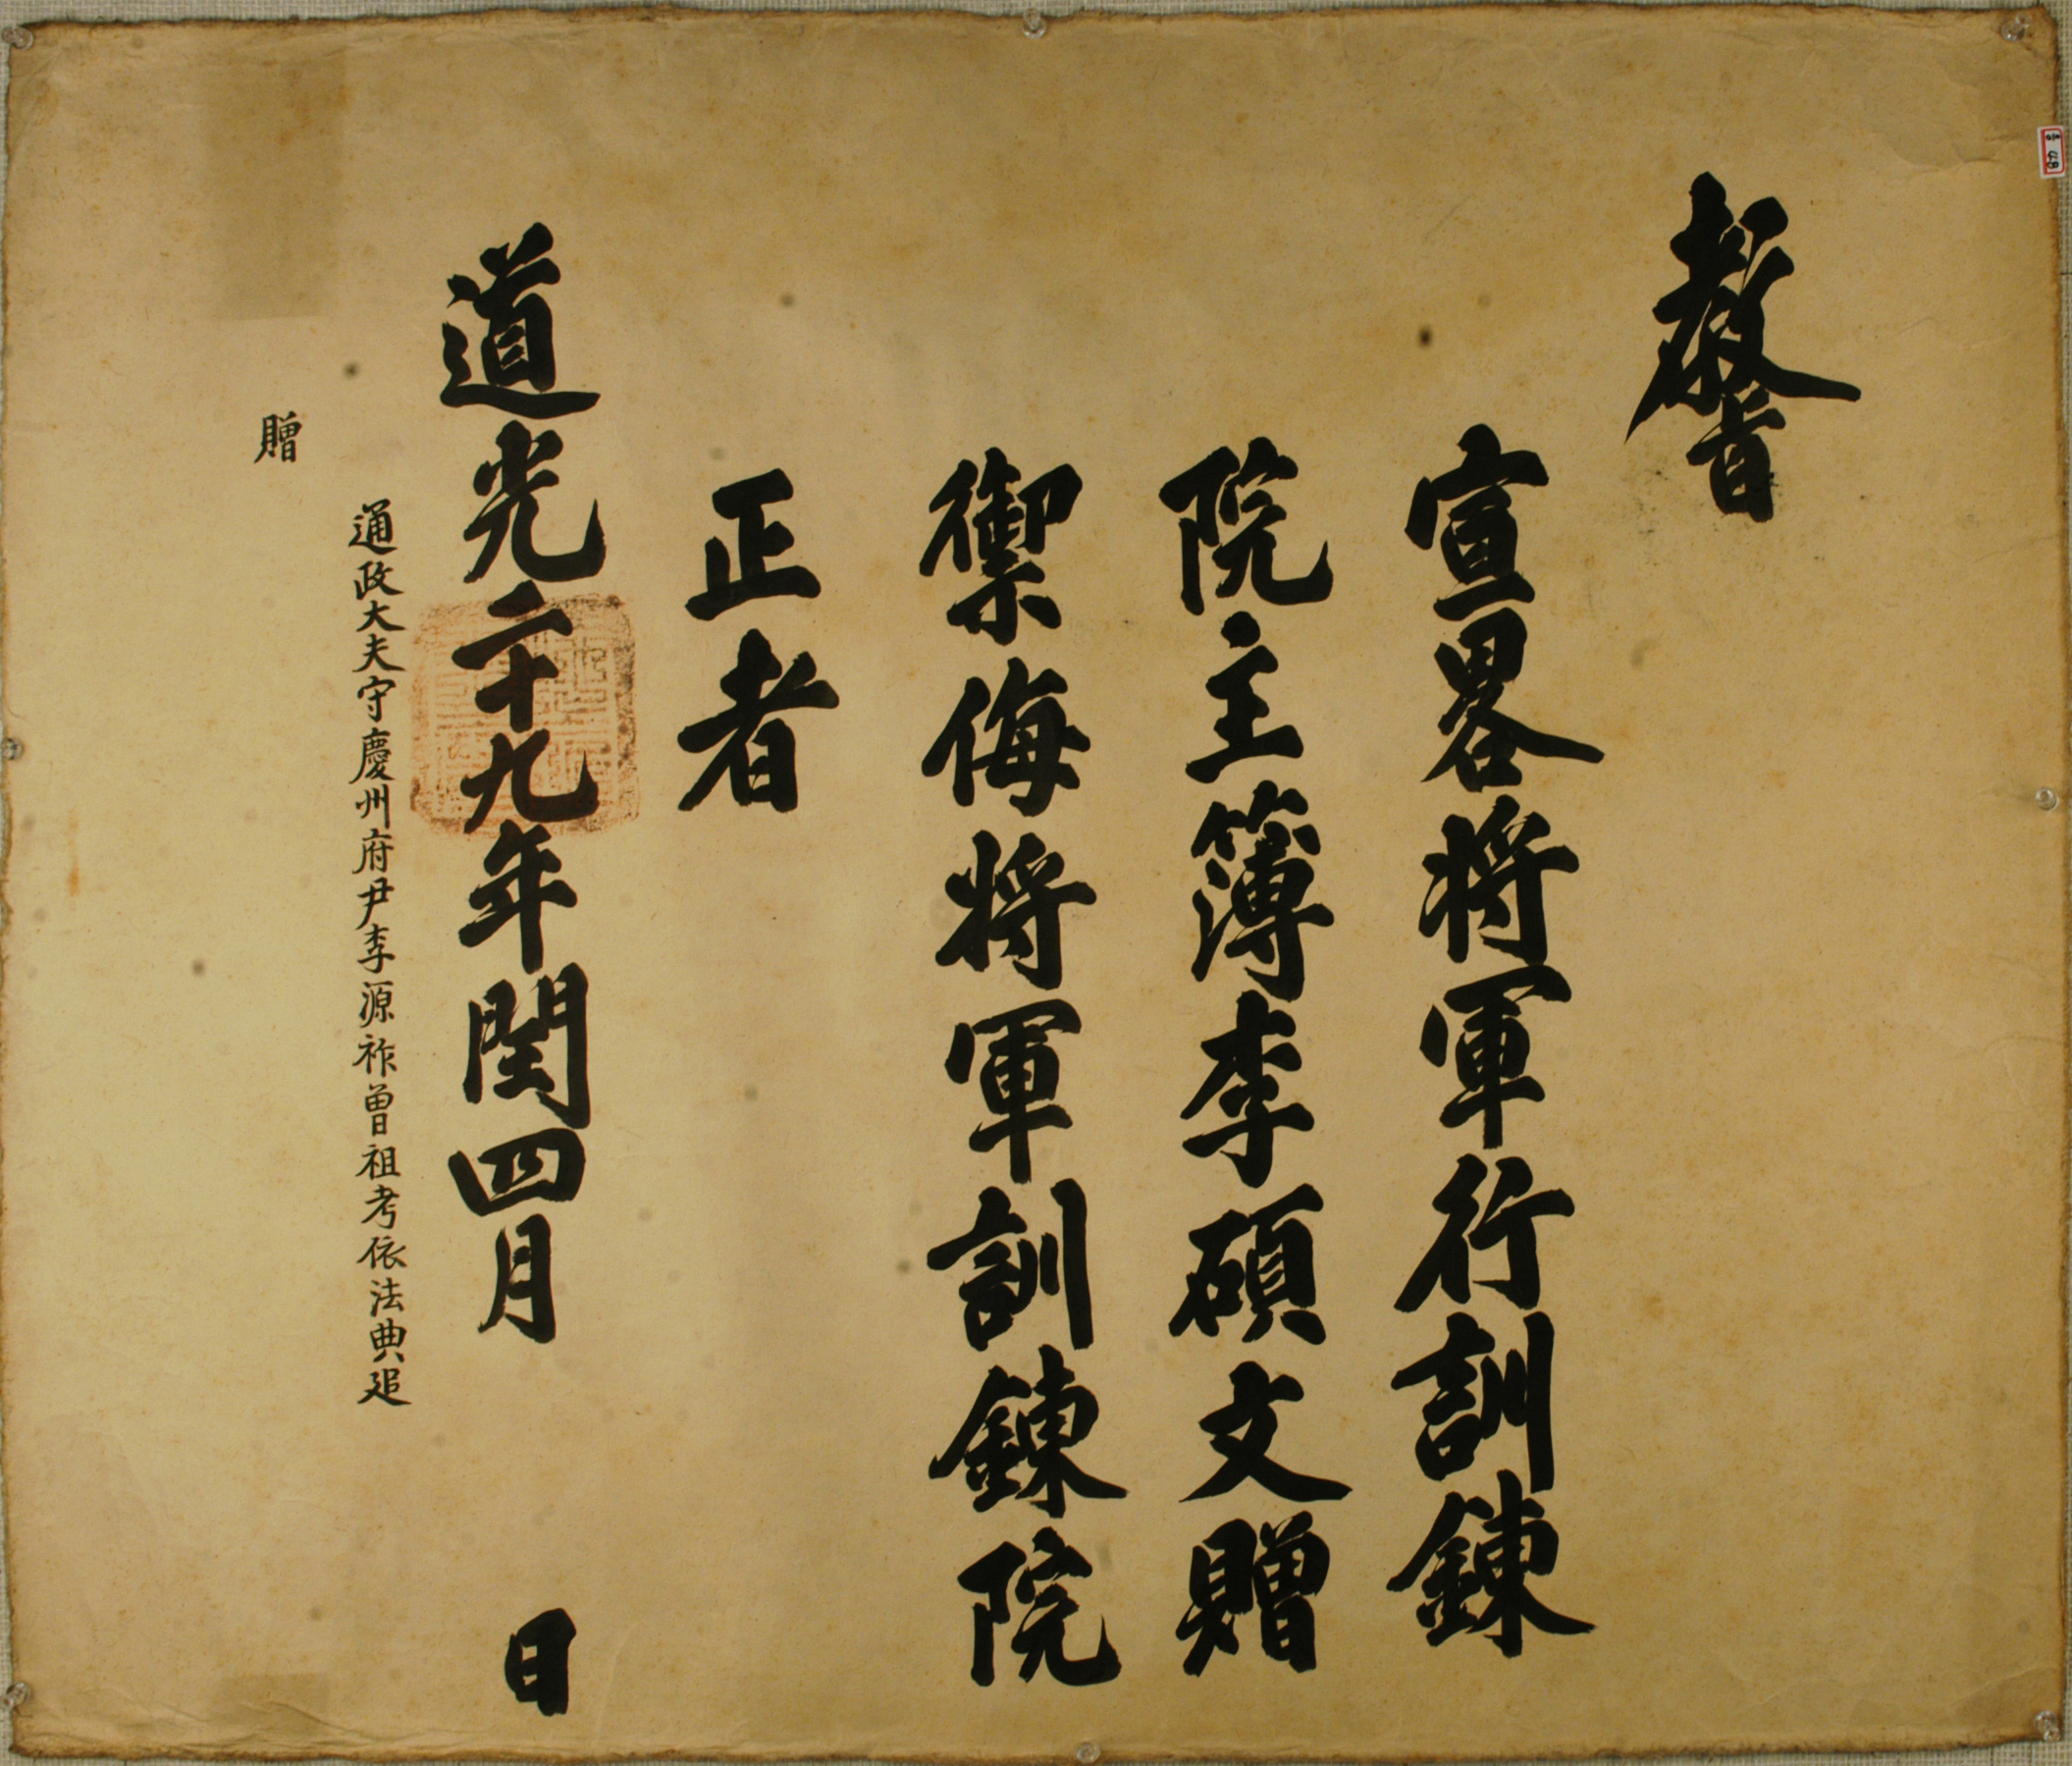 教旨
宣畧将軍行訓鍊
院主簿李碩文贈
禦侮将軍訓鍊院
正者
道光二十九年閏四月 日
通政大夫守慶州府尹李源祚曾祖考依法典追
贈